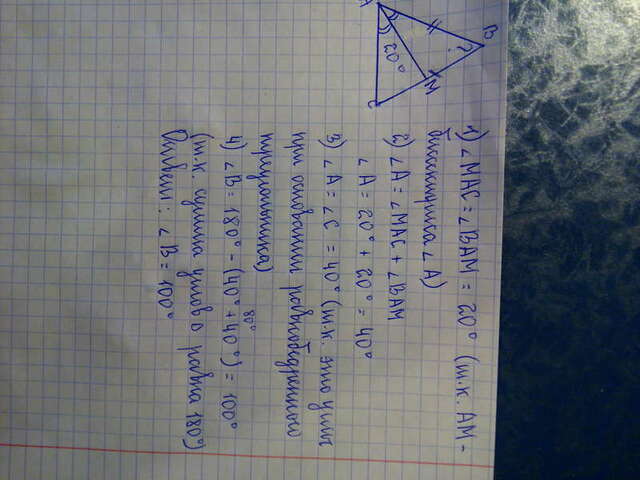 B
?
M
20°
A
C
1) ∠MAC = ∠BAM = 20° (т.к. AM -
биссектриса ∠A)
2) ∠A = ∠MAC + ∠BAM
∠A = 20° + 20° = 40°
3) ∠A = ∠C = 40° (т.к. это углы
при основании равнобедренного
треугольника)
80°
4) ∠B = 180° - (40° + 40°) = 100°
(т.к. сумма углов △ равна 180°)
Ответ: ∠B = 100°